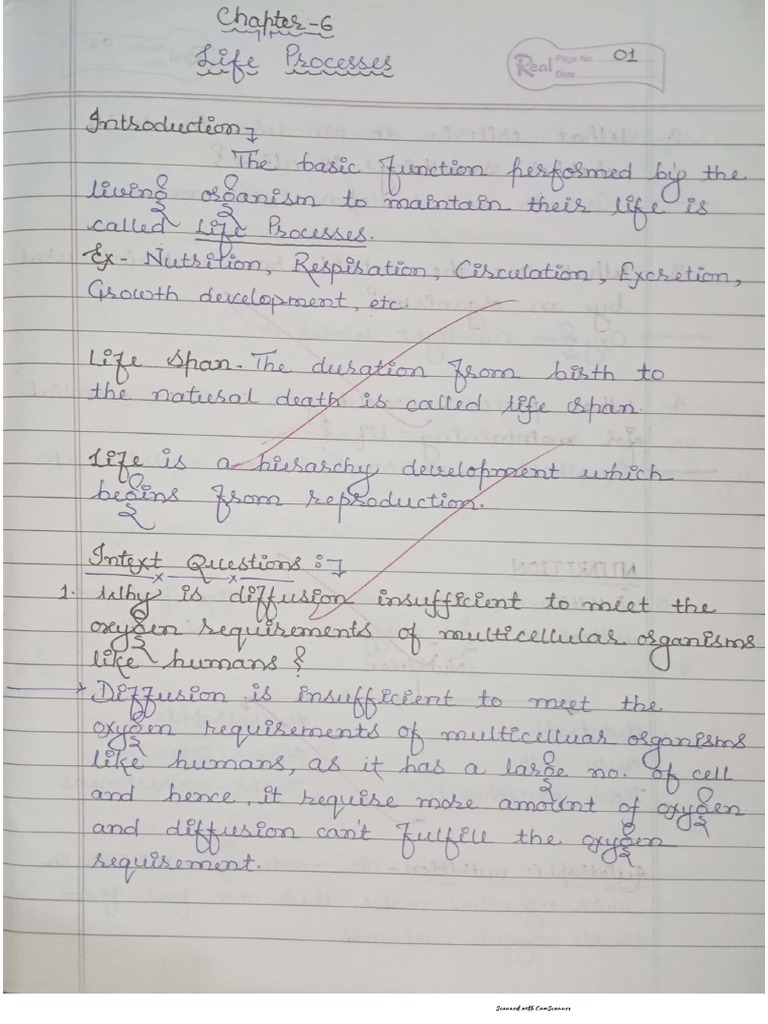 Chapter-6
Life Processes
Real Page No. 01
Date
Introduction
The basic function performed by the
living organism to maintain their life is
called Life Processes.
Ex- Nutrition, Respiration, Circulation, Excretion,
Growth development, etc.
Life span- The duration from birth to
the natural death is called life span.
Life is a hierarchy development which
begins from reproduction.
Intext Questions :-
1. Why is diffusion insufficient to meet the
oxygen requirements of multicellular organisms
like humans?
→ Diffusion is insufficient to meet the
oxygen requirements of multicelluar organisms
like humans, as it has a large no. of cell
and hence, it require more amount of oxygen
and diffusion can't fulfill the oxygen
requirement.
Scanned with CamScanner